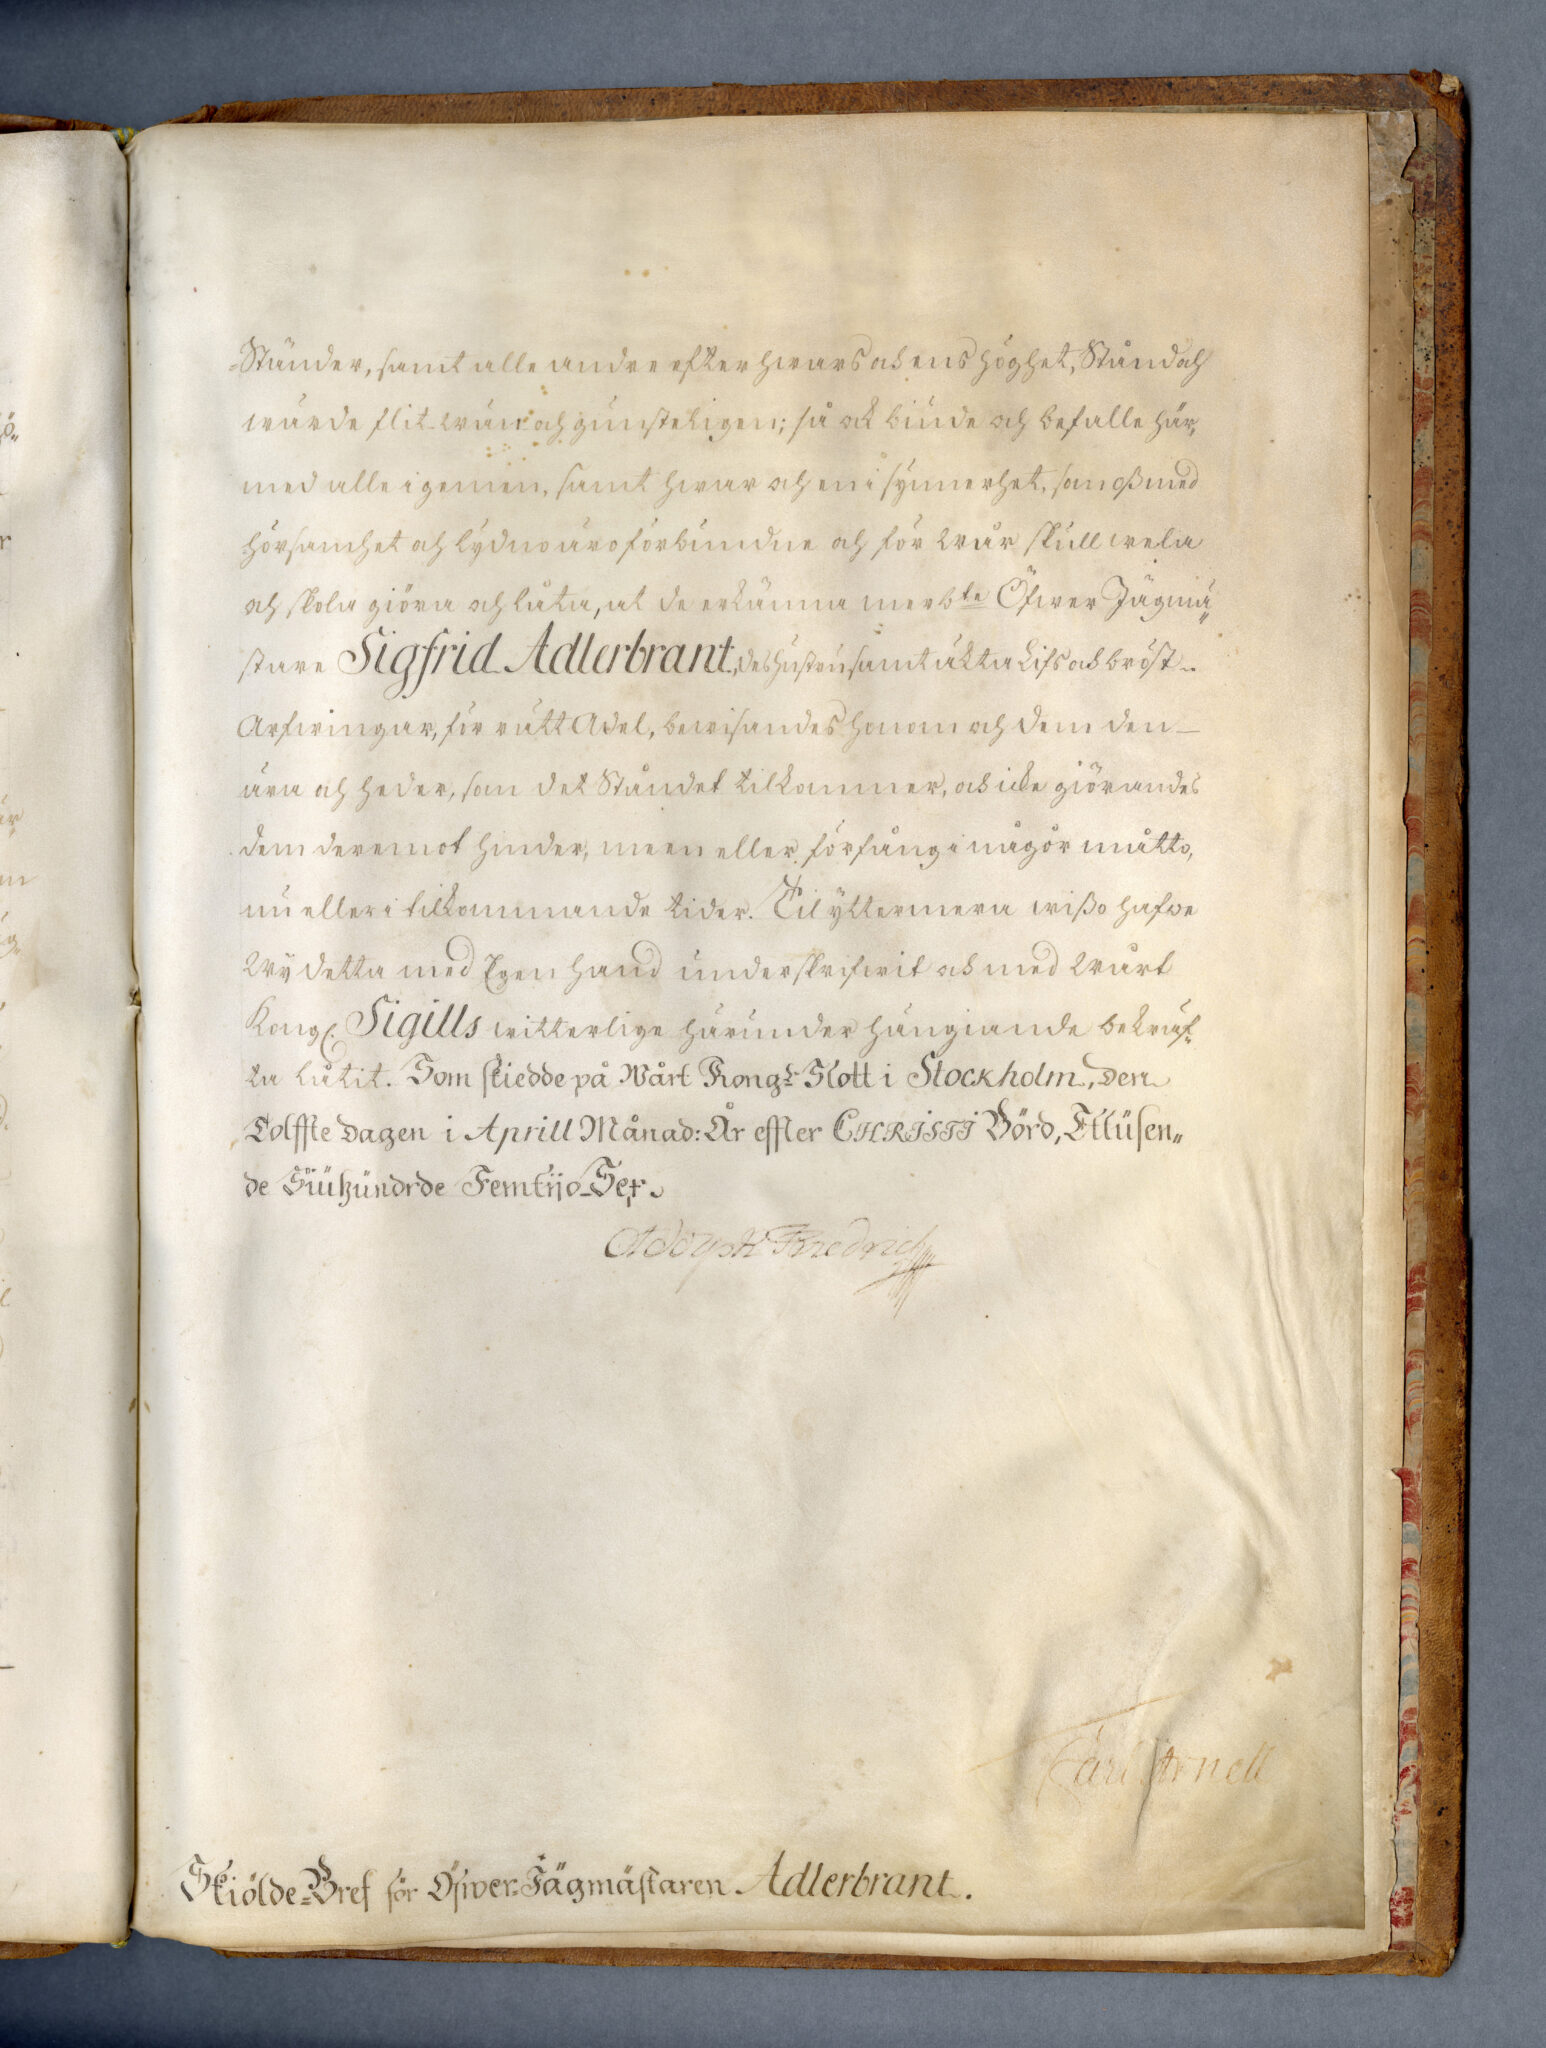 Ständer, samt alle andre efter hwars och ens höghet, Stånd och
wärde flit- wän- och gunsteligen; så ock biude och befalle här,
med alle i gemen, samt hwar och en i synnerhet, som oß med
hörsamhet och lydno äro förbundne och för wår skull wela
och skola giöra och låta, at de erkänna merbte Öfwer Jägmä„
stare Sigfrid Adlerbrant, des hustru samt äkta Lifs och bröst-
Arfwingar, för rätt Adel, bewisandes honom och dem den
ära och heder, som det Ståndet tilkommer, och icke giörandes
dem deremot hinder, meen eller förfång i någor måtto,
nu eller i tilkommande tider. Til yttermera wißo hafwe
Wy detta med Egen hand underskrifwit och med Wårt
Kongl. Sigills witterlige härunder hängiande bekräf-
ta låtit. Som skiedde på Wårt Kongl. Slott i Stockholm, den
Tolffte Dagen i Aprill Månad: År effter CHRISTI Börd, Ettüsen„
de Siühündrde Femtijo-Sex.
Adolph Friedrich
Carl Arnell
Skiölde-Bref för Öfwer-Jägmästaren Adlerbrant.